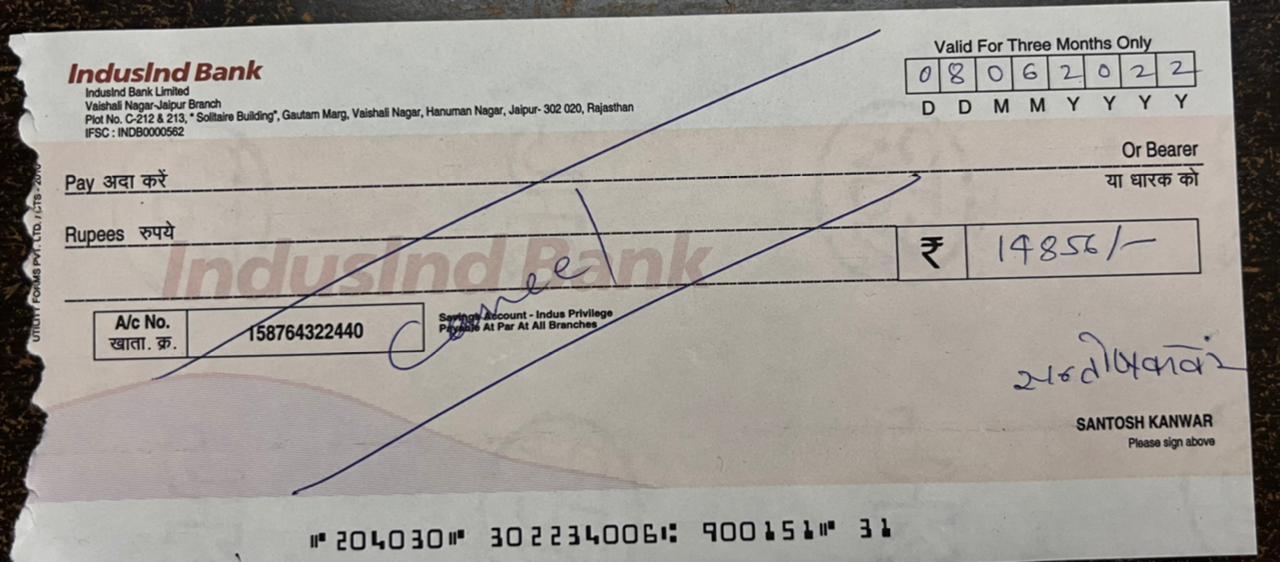 IndusInd Bank
IndusInd Bank Limited
Vaishali Nagar-Jaipur Branch
Plot No. C-212 & 213, " Solitaire Building", Gautam Marg, Vaishali Nagar, Hanuman Nagar, Jaipur- 302 020, Rajasthan
IFSC : INDB0000562
Valid For Three Months Only
0 8 0 6 2 0 2 2
D D M M Y Y Y Y
Pay अदा करें
Or Bearer
या धारक को
Rupees रुपये
IndusInd Bank
₹ 14856/-
Cancel
A/c No.
खाता. क्र.
158764322440
Savings Account - Indus Privilege
Payable At Par At All Branches
SANTOSH KANWAR
Please sign above
UTILITY FORMS PVT. LTD. / CTS - 2010
⑈204030⑈ 302234006⑆ 900151⑈ 31